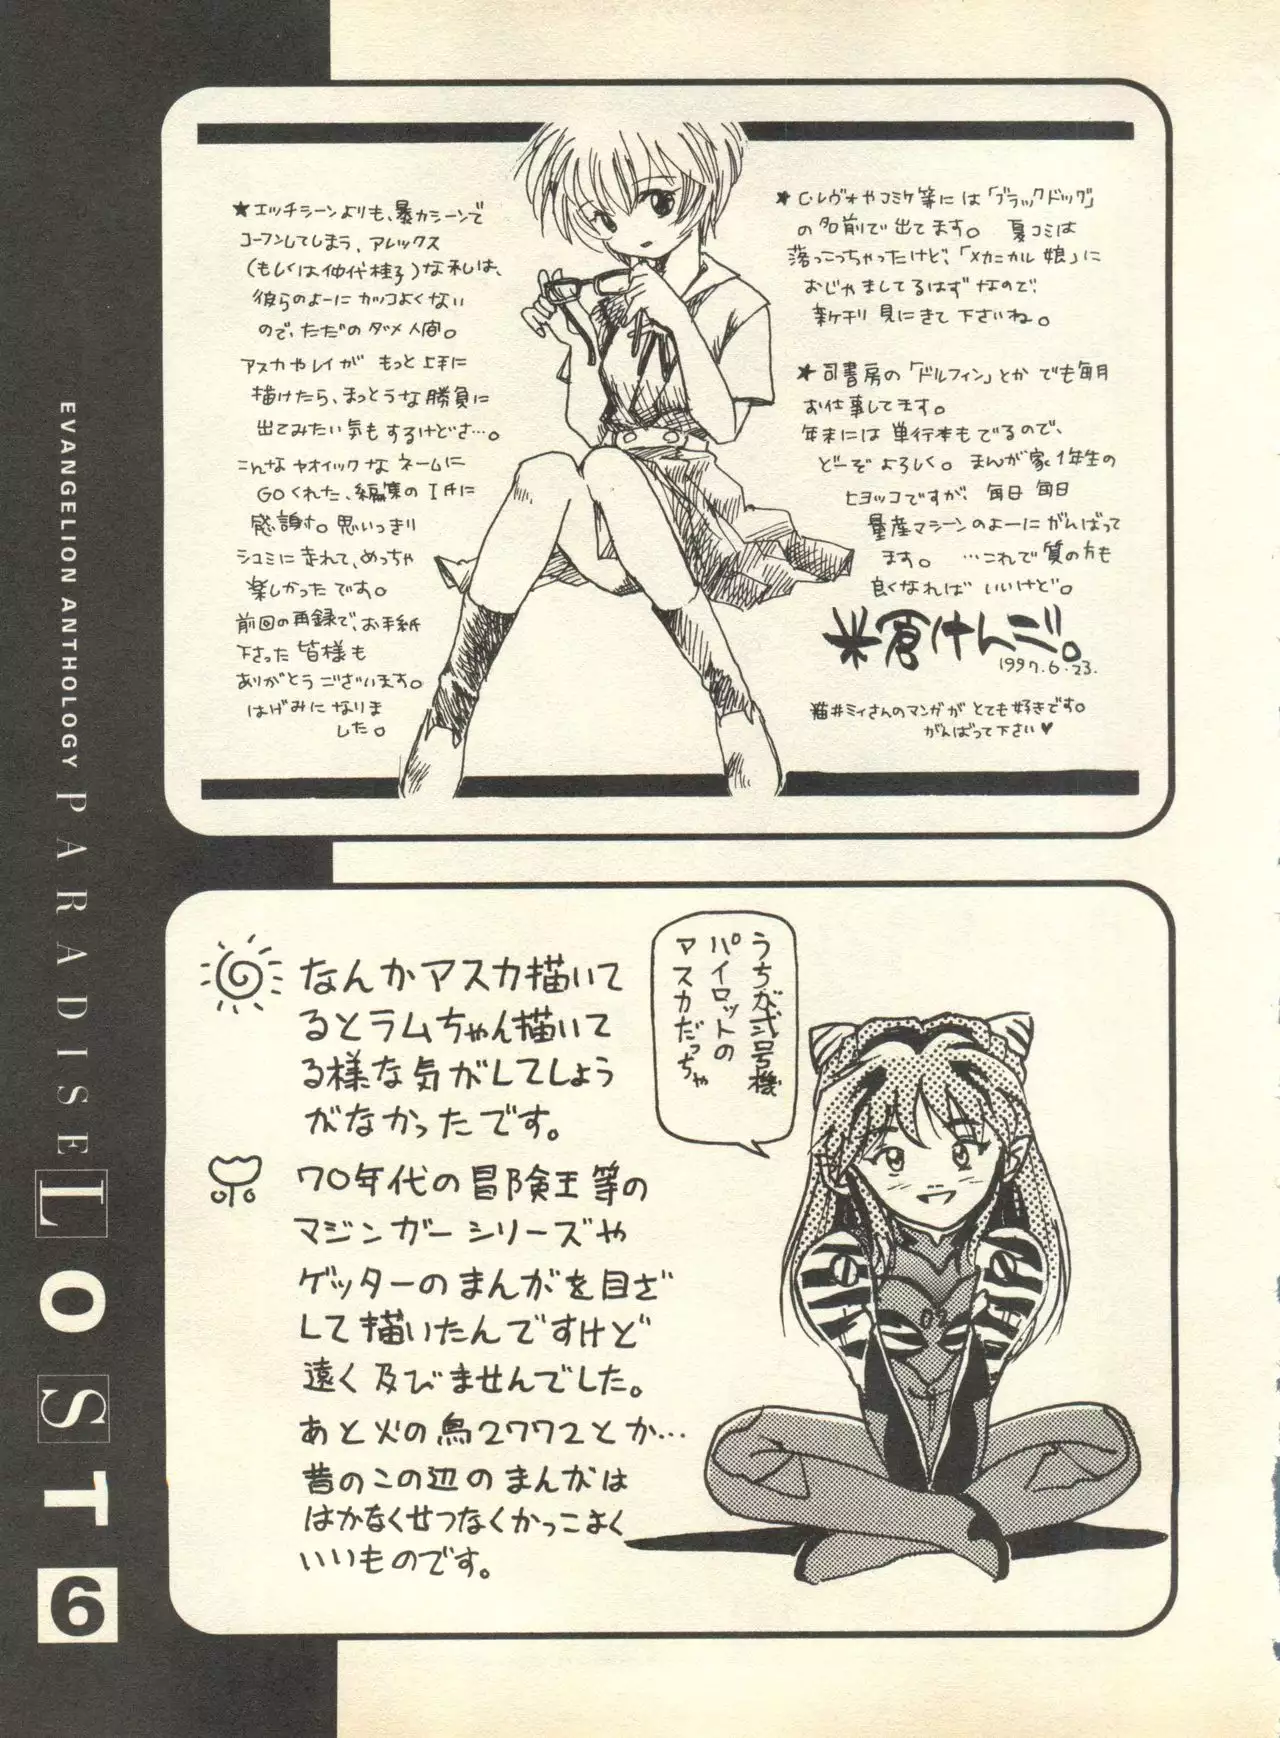 EVANGELION ANTHOLOGY PARADISE LOST 6
★エッチシーンよりも、暴力シーンで
コーフンしてしまう、アレックス
(もしくは仲代桂子)な私は、
彼らのよーにカッコよくない
ので、ただのダメ人間。
アスカやレイが もっと上手に
描けたら、まっとうな勝負に
出てみたい気もするけどさ…。
こんなヤオイックなネームに
GOくれた、編集のI氏に
感謝す。思いっきり
シュミに走れて、めっちゃ
楽しかったです。
前回の再録で、お手紙
下さった皆様も
ありがとうございます。
はげみになりま
した。
★C・レヴォやコミケ等には「ブラックドッグ」
の名前で出てます。 夏コミは
落っこっちゃったけど、「メカニカル娘」に
おじゃましてるはずなので、
新刊 見にきて下さいね。
★司書房の「ドルフィン」とか でも毎月
お仕事してます。
年末には単行本もでるので、
どーぞよろしく。まんが家1年生の
ヒヨッコですが、毎日毎日
量産マシーンのよーにがんばって
ます。 …これで質の方も
良くなればいいけど。
米倉けんご。
1997.6.23.
猫井ミィさんのマンガがとても好きです。
がんばって下さい♥
なんかアスカ描いて
るとラムちゃん描いて
る様な気がしてしょう
がなかったです。
70年代の冒険王等の
マジンガーシリーズや
ゲッターのまんがを目ざ
して描いたんですけど
遠く及びませんでした。
あと火の鳥2772とか…
昔のこの辺のまんがは
はかなくせつなくかっこよく
いいものです。
うちが弐号機
パイロットの
アスカだっちゃ